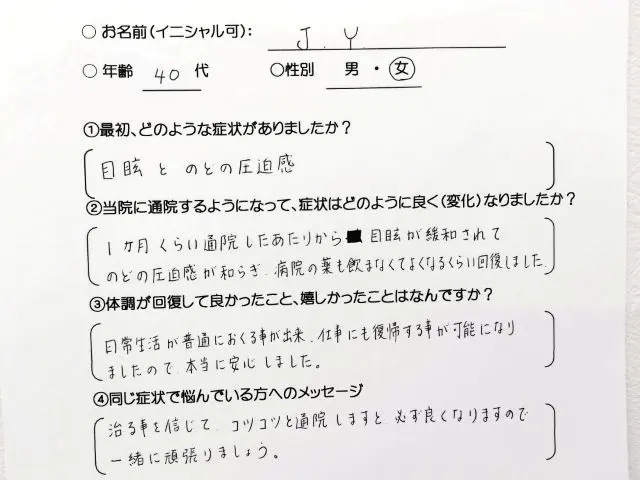 ○ お名前(イニシャル可): J.Y
○ 年齢 40 代 ○性別 男 ・ 女
①最初、どのような症状がありましたか?
目眩 と のどの圧迫感
②当院に通院するようになって、症状はどのように良く(変化)なりましたか?
1ヶ月くらい通院したあたりから 目眩が緩和されて
のどの圧迫感が和らぎ、病院の薬も飲まなくてよくなるくらい回復しました。
③体調が回復して良かったこと、嬉しかったことはなんですか?
日常生活が普通におくる事が出来、仕事にも復帰する事が可能になり
ましたので、本当に安心しました。
④同じ症状で悩んでいる方へのメッセージ
治る事を信じて、コツコツと通院しますと、必ず良くなりますので
一緒に頑張りましょう。